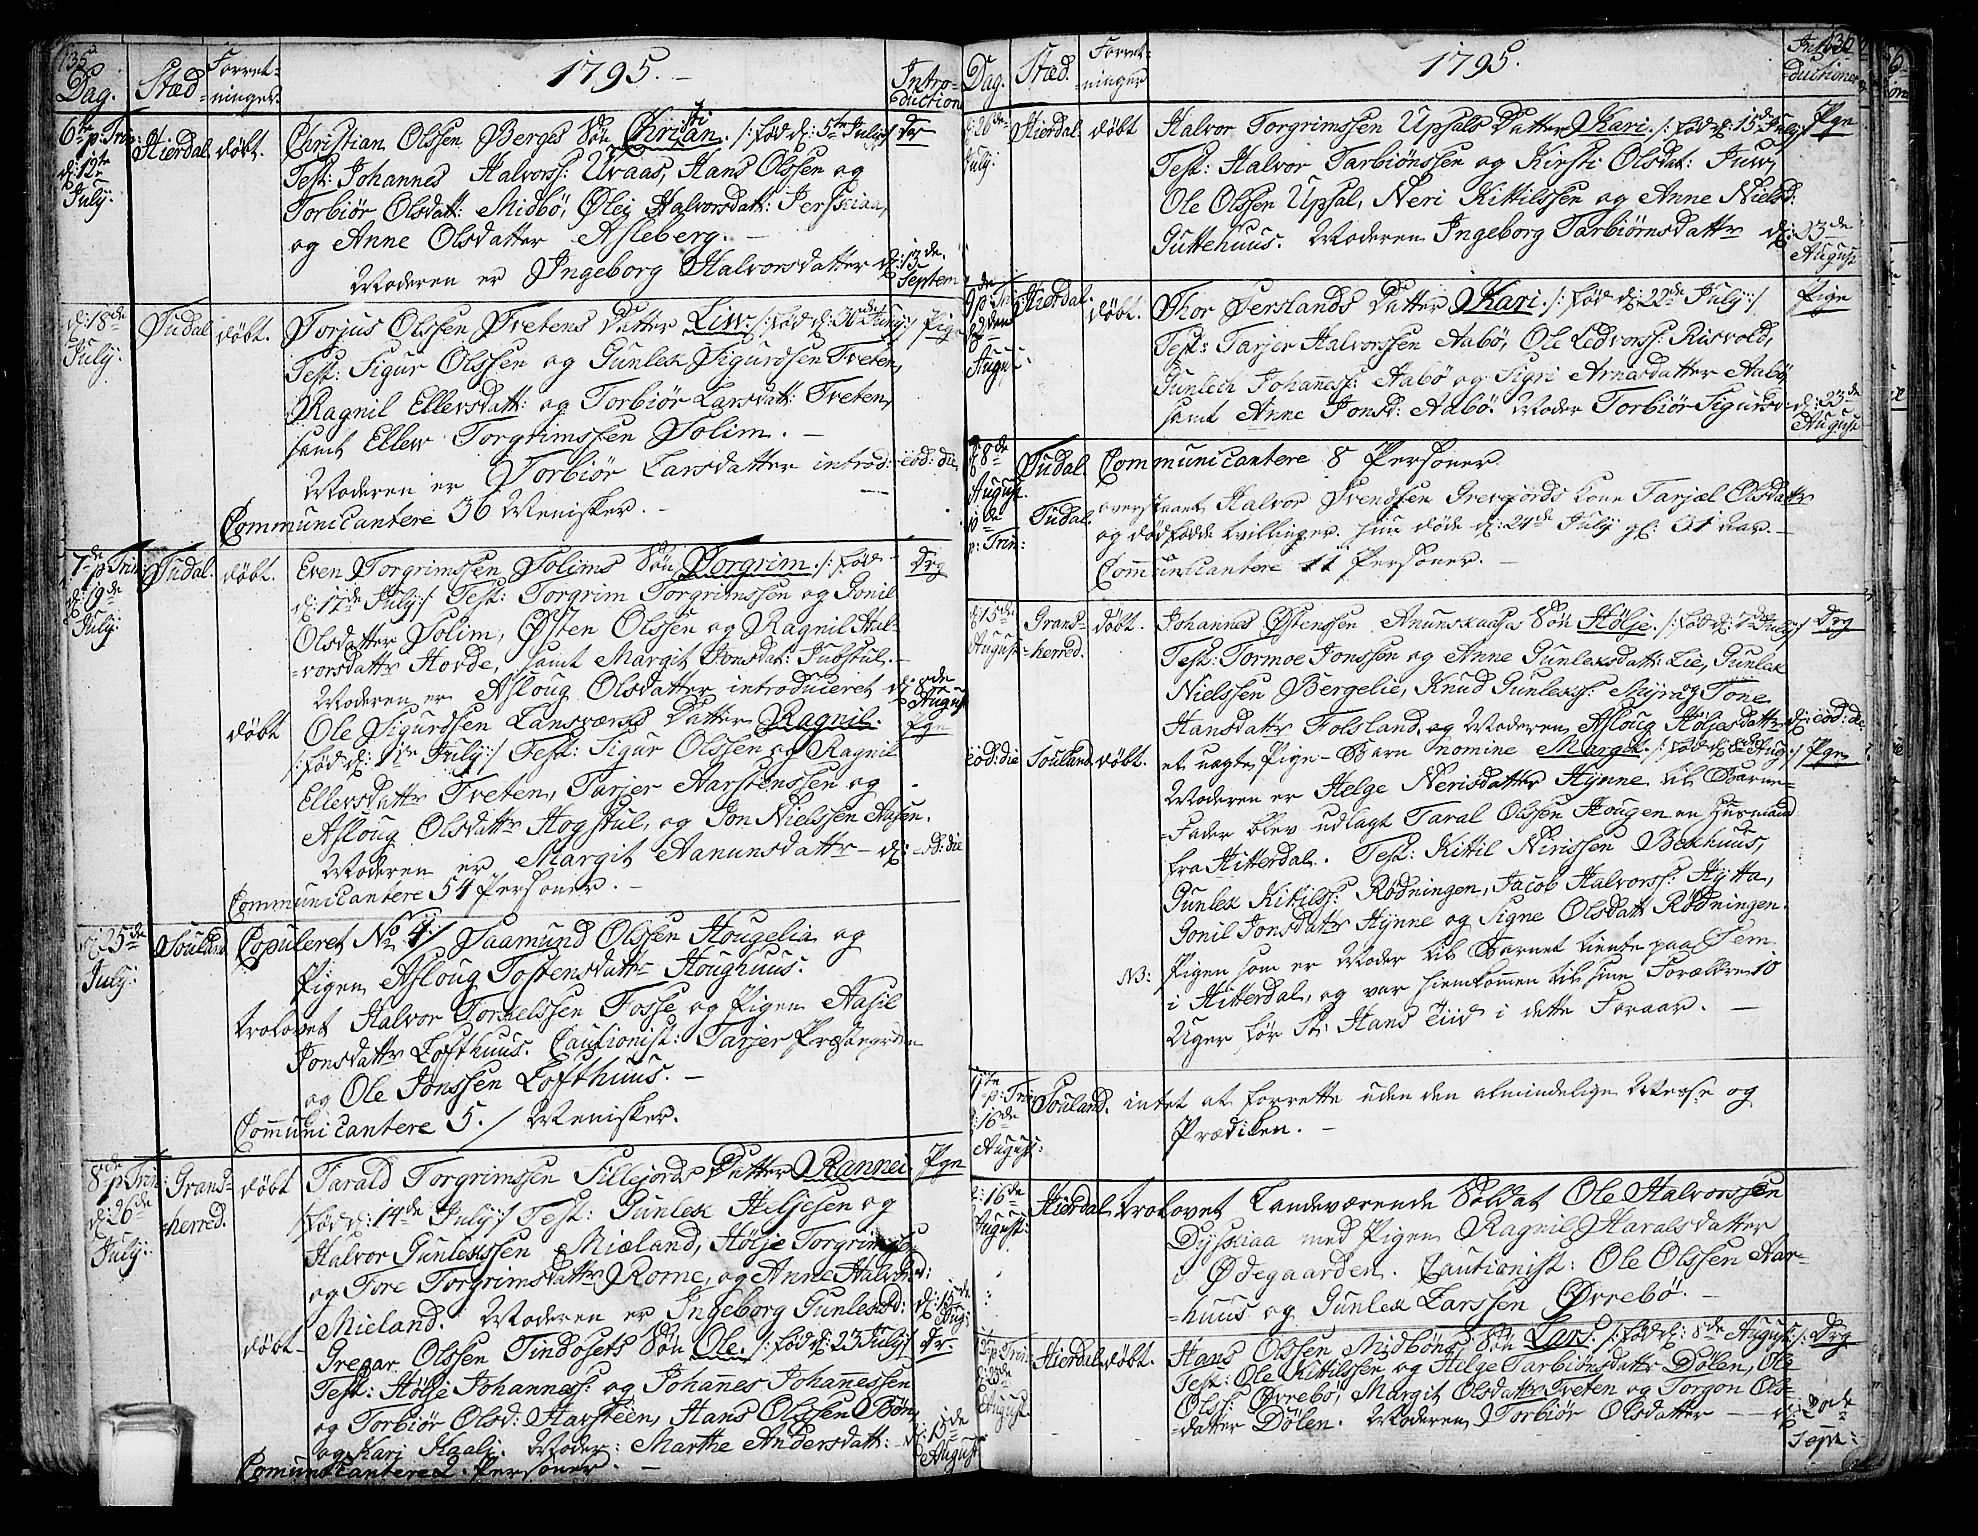 135
Dag. Stæd Forret-
ninger. 1795. Intro-
duction
6te p: Trin: d: 12te July: Hierdal døbt. Christian Olssen Berges Søn Chrstian. /: fød d: 5te July :/ Dr
Test: Johannes Halvorss: Uraas, Hans Olssen og
Torbiør Olsdatt: Midbø, Øley Halvorsdatt:
og Anne Olsdatter Asleberg. —
Moderen er Ingeborg Halvorsdatter d: 13de Septem
d: 18de July: Tudal døbt. Torjus Olssen Tvetens Datter Liw. /: fød d: 30de Juny :/ Pige
Test: Sigur Olssen og Gunlek Sigurdsen Tveten,
Ragnil Ellevsdatt: og Torbiør Larsdatt: Tveten,
samt Ellew Torgrimssen Solim. —
Moderen er Torbiør Larsdatter introd: eod: die
Communicantere 36 Menisker. —
7de p: Trin: d: 19de July: Tudal. døbt. Even Torgrimssen Solims Søn Torgrim. /: fød Drg
d: 17de July :/ Test: Torgrim Torgrimssen og Gonil
Olsdatter Solim, Østen Olssen og Ragnil Hal-
vorsdattr Hovde, samt Margit Jonsdat: Jubstul. —
Moderen er Asloug Olsdatter introduceret d: August
døbt Ole Sigurdsen Lansværks Datter Ragnil. Pgn
/: fød d: 11te July :/ Test: Sigur Olssen og Ragnil
Ellevsdattr Tveten, Tarjer Aarstenssen og
Asloug Olsdattr Hogstul, og Jon Nielssen Aasen.
Moderen er Margit Aanunsdattr — d: eod: die
Communicantere 54 Personer. —
d: 25de July: Souland Copuleret No 4/ Saamund Olssen Hougelia og
Pigen Asloug Tostensdattr Houghuus.
trolovet Halvor Torkelssen Fosse og Pigen Aasil
Jonsdattr Lofthuus. Cautionist: Tarjer Præstegarden
og Ole Jonssen Lofthuus. —
Communicantere 5. / Menisker.
8de p: Trin: d: 26de July: Grand-
herred. døbt Tarald Torgrimssen Sillejords Datter Rannei. Pgn
/: fød d: 14de July :/ Test: Gunlek Heljesen og
Halvor Gunlekssen Mieland, Høije Torgrimssen
og Tore Torgrimsdattr Rome, og Anne Halvord:
Mieland. Moderen er Ingeborg Gunleksd: d: 15de Aug:
døbt Gregar Olssen Tindosets Søn Ole. /: fød d: 23 July :/ Dr.
Test: Høije Johanness: og Johannes Johannessen
og Torbiør Olsd: Harsteen, Hans Olssen Bøn,
og Kari Kaali. Moder: Marthe Andersdatt: d: 15de August
Communicantere 2. Personer. —
Dag. Stæd. Forret-
ninger 1795. Intro-
ductioner
d: 26de July: Hierdal døbt Halvor Torgrimssen Upsals Datter Kari. /: fød d: 15de July :/ Pgn
Test: Halvor Tarbiønssen og Kirsti Olsdat: Juw,
Ole Olssen Upsal, Neri Kittilssen og Anne Nielsd:
Guttehuus. Moderen Ingeborg Tarbiørnsdattr d: 23de August
9de p: Tri: d: 2den August Hierdal. døbt. Thor Serslands Datter Kari. /: fød d: 22de July :/ Pige
Test: Tarjer Halvorssen Aabø, Ole Ledvorss: Risvold,
Gunlech Johaness: Aabø og Sigri Arnesdatter Aabø
samt Anne Jonsd: Aabø. Moder Torbiør Sigursd: d: 23de August
d: 8de August Tudal Communicantere 8 Personer
10de p: Trin: Tudal. overstaaet Halvor Svendsen Grevjords Kone Tarjæl Olsdattr
og dødfødde tvillinger. hun døde d: 24de July gl: 31 aar. —
Communicantere 11 Personer. —
d: 15de August Grand-
herred. døbt. Johannes Østenssen Anunskaases Søn Hølje. /: fød d: 7de July :/ Drg
Test: Tormoe Jonssen og Anne Gunleksdatt: Lie, Gunlek
Nielssen Bergelie, Knud Gunlekss: Myre og Tone
Hansdattr Folsland, og Moderen Asloug Høljesdattr d: eod: die
eod: die Souland døbt. et uegte Pige-Barn nomine Margit. /: fød d: 8de Aug: :/ Pgn
Moderen er Helge Nerisdatter Hynne til Barne-
Fader blev udlagt Taral Olssen Hougen en Husmand
fra Hitterdal. Test: Kittil Nirissen Bekhuus,
Gunlek Kittilss: Rødningen, Jacob Halvorss: Hytta,
Gonil Jonsdattr Hynne og Signe Olsdatt Rødningen.
NB: Pigen som er Moder til Barnet tiente paa Sem
i Hitterdal, og var hiemkommen til sine Forældre 10
Uger før St: Hans Tiid i dette Foraar. —
11te p: Tri: d: 16de August: Souland. intet at forrette uden den almindelige Messe og
Prædiken. —
d: 16de August: Hierdal trolovet Landeværende Soldat Ole Halvorssen
Dyskiaa med Pigen Ragnil Haralsdatter
Ødegaarden. Cautionist: Ole Olssen Aar-
huus og Gunlek Larssen Øvrebø. —
12te p: Trin: d: 23de August. Hierdal døbt. Hans Olssen Midbøns Søn Lars. /: fød d: 8de August :/. Drg
Test: Ole Kittilssen og Helge Tarbiønsdattr Dølen, Ole
Olss: Øvrebø, Margit Olsdattr Tveten og Torgon Ols-
datter Dølen. Moderen Torbiør Olsdatter — d: Septe: